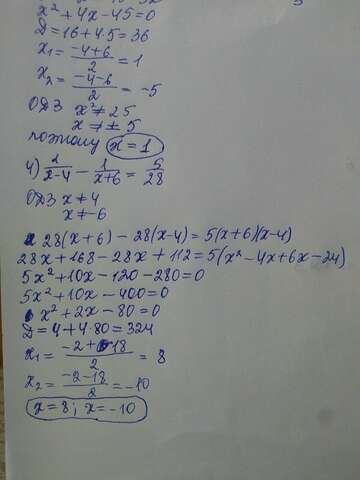 x² + 4x - 45 = 0
D = 16 + 4·5 = 36
x₁ = (-4+6)/2 = 1
x₂ = (-4-6)/2 = -5
ОДЗ x² ≠ 25
x ≠ ± 5
поэтому x = 1
4) 1/(x-4) - 1/(x+6) = 5/28
ОДЗ x ≠ 4
x ≠ -6
28(x+6) - 28(x-4) = 5(x+6)(x-4)
28x + 168 - 28x + 112 = 5(x² - 4x + 6x - 24)
5x² + 10x - 120 - 280 = 0
5x² + 10x - 400 = 0
x² + 2x - 80 = 0
D = 4 + 4·80 = 324
x₁ = (-2+18)/2 = 8
x₂ = (-2-18)/2 = -10
x = 8; x = -10